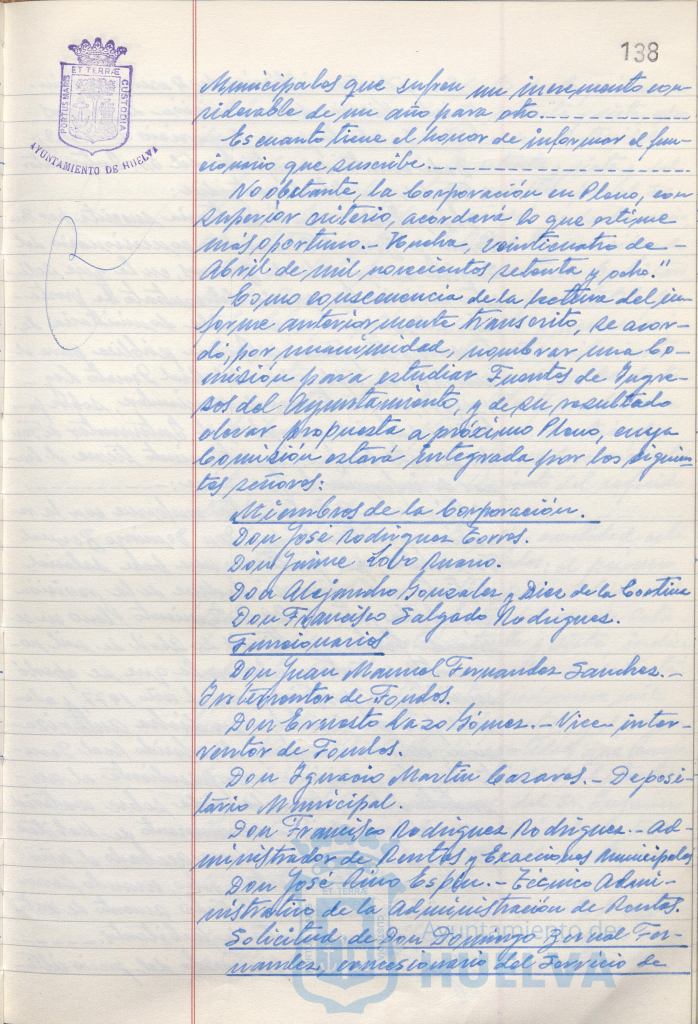 138
PORTUS MARIS ET TERRÆ CUSTODIA
AYUNTAMIENTO DE HUELVA
Municipales que sufren un incremento con-
siderable de un año para otro.
Es cuanto tiene el honor de informar el fun-
cionario que suscribe.
No obstante, la Corporación en Pleno, con
superior criterio, acordará lo que estime
más oportuno.- Huelva, veinticuatro de-
Abril de mil novecientos setenta y ocho."
Como consecuencia de la lectura del in-
forme anteriormente transcrito, se acor-
dó, por unanimidad, nombrar una Co-
misión para estudiar Fuentes de Ingre-
sos del Ayuntamiento, y de su resultado
elevar propuesta a próximo Pleno, cuya
Comisión estará integrada por los siguien-
tes señores:
Miembros de la Corporación.
Don José Rodriguez Torres.
Don Jaime Lobo
Don Alejandro Gonzalez y Diez de la Cortina
Don Francisco Salgado Rodriguez.
Funcionarios
Don Juan Manuel Fernandez Sanchez.-
Interventor de Fondos.
Don Ernesto Lazo Gómez.- Vice-inter-
ventor de Fondos.
Don Ignacio Martín Cazares.- Deposi-
tario Municipal.
Don Francisco Rodriguez Rodriguez.- Ad-
ministrador de Rentas y Exacciones Municipales
Don José Pino Espin.- Técnico Admi-
nistrativo de la Administración de Rentas.
Solicitud de Don Domingo Bernal Fer-
nandez, concesionario del Servicio de
Ayuntamiento de
HUELVA